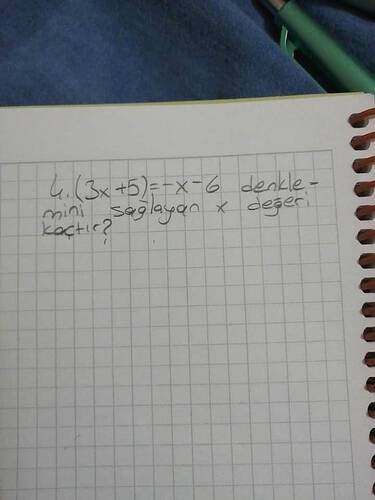 4.(3x+5)=-x-6 denkle-
mini sağlayan x değeri
kaçtır?